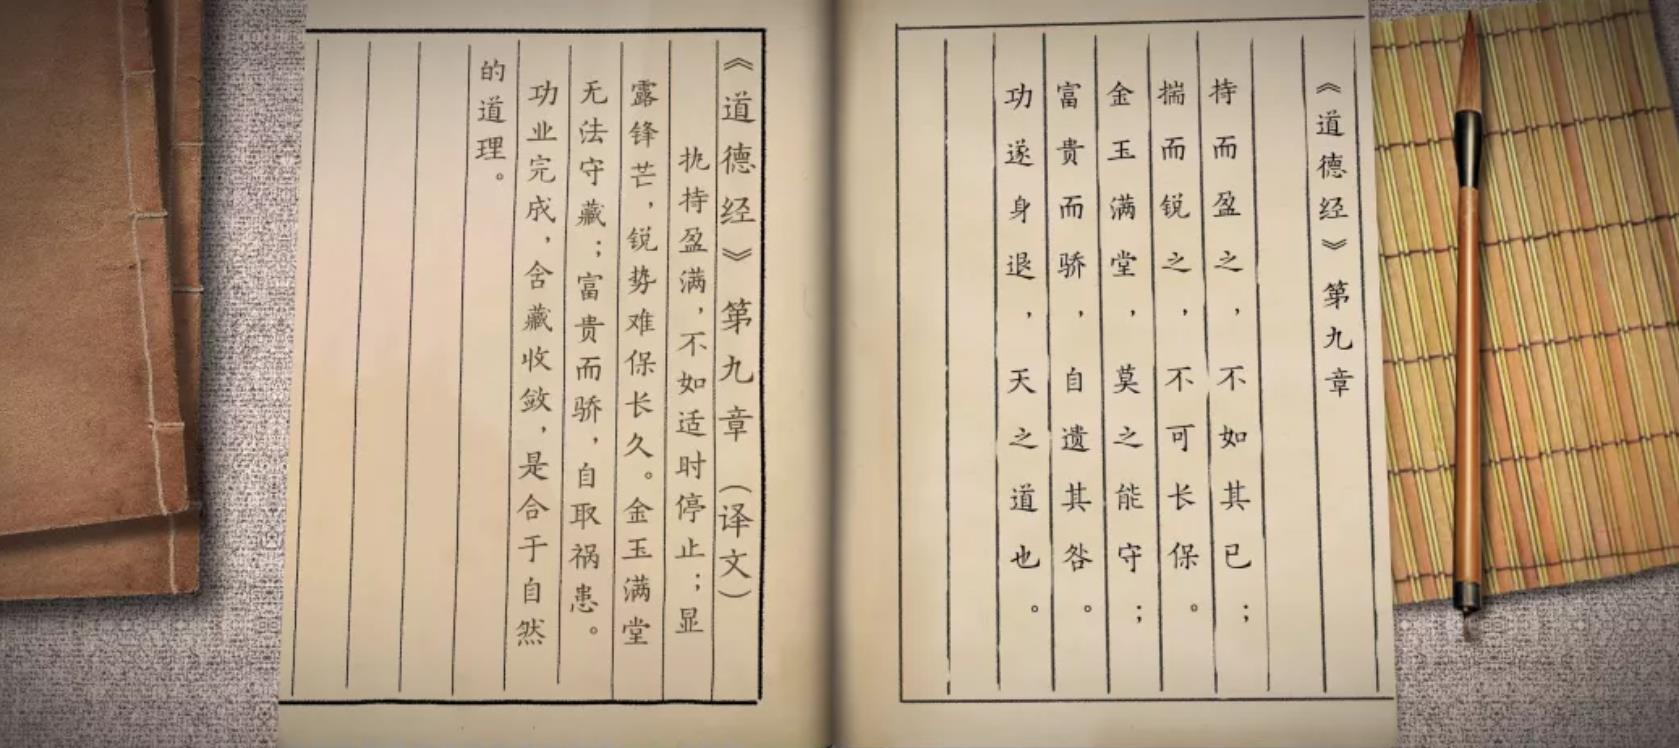 《道德经》第九章
持而盈之，不如其已；
揣而锐之，不可长保。
金玉满堂，莫之能守；
富贵而骄，自遗其咎。
功遂身退，天之道也。
《道德经》第九章（译文）
执持盈满，不如适时停止；显
露锋芒，锐势难保长久。金玉满堂
无法守藏；富贵而骄，自取祸患。
功业完成，含藏收敛，是合于自然
的道理。